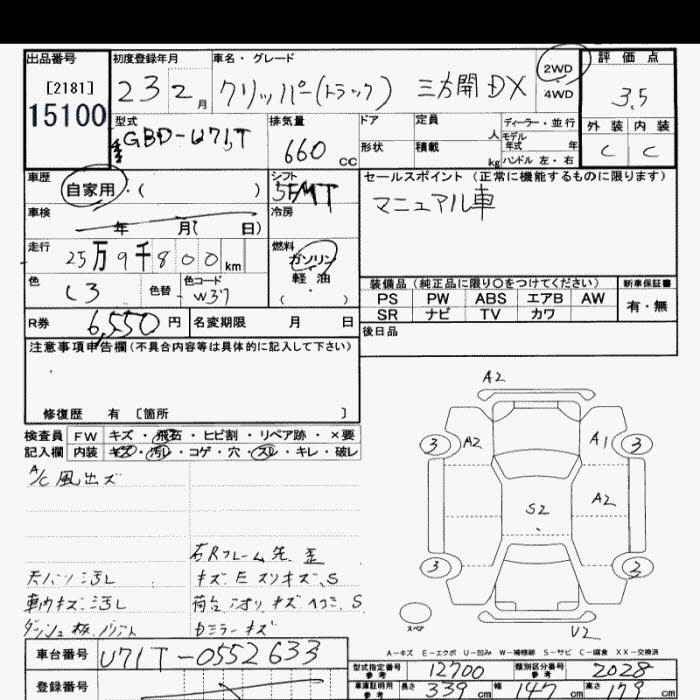 出品番号
[2181]
15100
初度登録年月
23 2 月
車名・グレード
クリッパー(トラック) 三方開 DX
2WD
4WD
評価点
3.5
外装 内装
C C
型式
GBD-U71T
排気量
660 CC
ドア
形状
定員
人
積載
kg
ディーラー・並行
モデル年式 年
ハンドル 左・右
車歴
自家用・( )
シフト
5FMT
車検
年 月( 日)
冷房
走行
25万9千800km
燃料
ガソリン
・
軽油
( )
色
しろ
色替
色コード
W37
R券 6,550 円
名変期限 月 日
セールスポイント(正常に機能するものに限ります)
マニュアル車
装備品(純正品に限り○をつけてください)
PS PW ABS エアB AW
SR ナビ TV カワ
新車保証書
有・無
後日品
注意事項申告欄(不具合内容等は具体的に記入して下さい)
修復歴 有 〔箇所 〕
検査員
記入欄
FW キズ・飛石・ヒビ割・リペア跡・×要
内装 キズ・汚レ・コゲ・穴・スレ・キレ・破レ
A/C 風出ズ
右Rフレーム先 歪
天バリ汚レ
キズ、E スリキズ、S
車内キズ、汚レ
荷台 キズ ヘコミ、S
ダッシュ板
ミラーキズ
A2
3 A2 A1 3
A2
S2
3 3
スペア
U2
A-キズ E-エクボ U-凹み W-補修跡 S-サビ C-腐食 XX-交換済
車台番号 U71T-0552633
登録番号
型式指定番号 参考 12700
類別区分番号 参考 2028
車庫証明用 参考 長さ 339 cm 幅 147 cm 高さ 179 cm